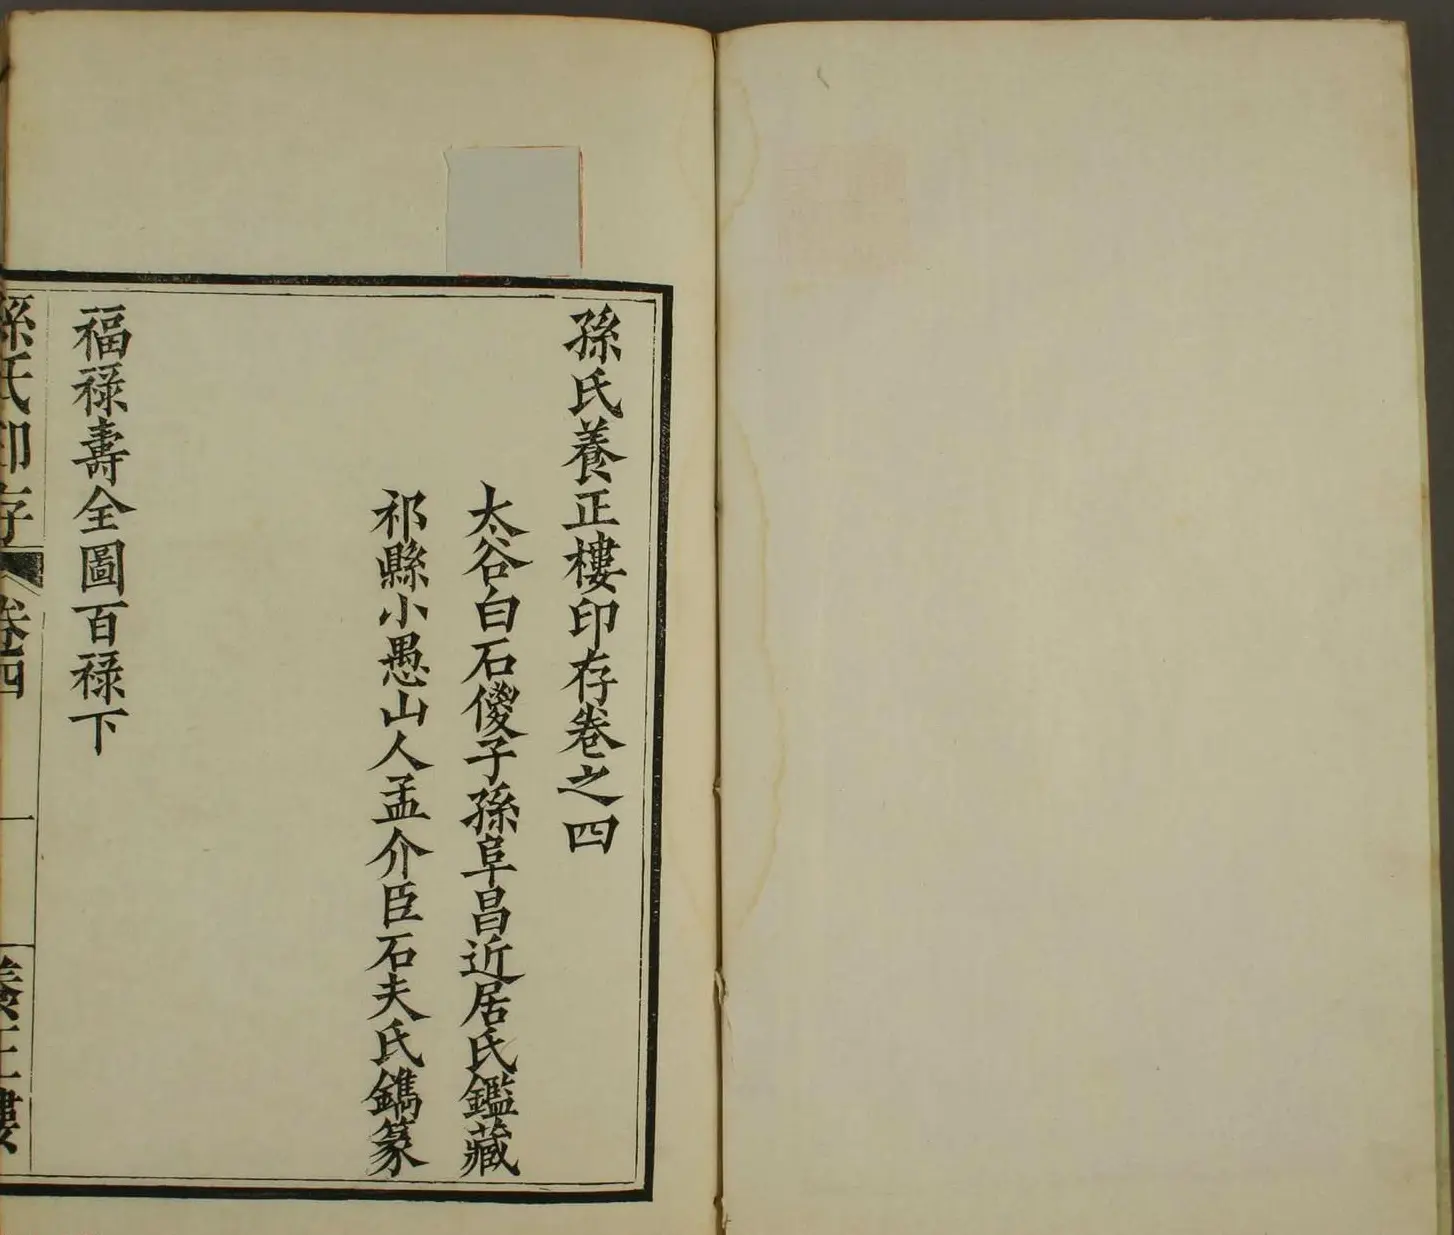 孫氏養正樓印存卷之四
太谷白石儍子孫阜昌近居氏鑑藏
祁縣小愚山人孟介臣石夫氏鐫篆
福祿壽全圖百祿下
孫氏印存
卷四
一
養正樓